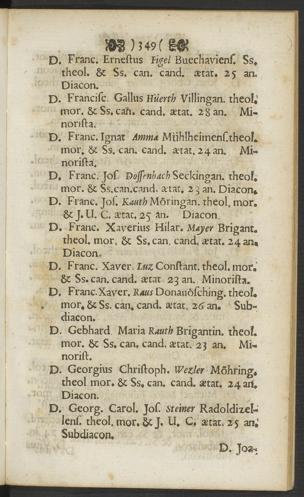 )349(
D. Franc. Erneſtus Figel Buechavienſ. Ss.
theol. & Ss. can. cand. ætat. 25 an.
Diacon.
D. Franciſc. Gallus Hüerth Villingan. theol.
mor. & Ss. can. cand. ætat. 28 an. Mi-
noriſta.
D. Franc. Ignat Amma Mühlheimenſ. theol.
mor. & Ss. can. cand. ætat. 24 an. Mi-
noriſta.
D. Franc. Joſ. Doſſenbach Seckingan. theol.
mor. & Ss. can. cand. ætat. 23 an. Diacon.
D. Franc. Joſ. Kauth Möringan. theol. mor.
& J. U. C. ætat. 25 an. Diacon
D. Franc. Xaverius Hilar. Mayer Brigant.
theol. mor. & Ss. can. cand. ætat. 24 an.
Diacon.
D. Franc. Xaver. Luz Conſtant. theol. mor.
& Ss. can. cand. ætat 23 an. Minoriſta.
D. Franc. Xaver. Raus Donauöſching. theol.
mor. & Ss. can. cand. ætat. 26 an. Sub-
diacon.
D. Gebhard Maria Rauth Brigantin. theol.
mor. & Ss. can. cand. ætat. 23 an. Mi-
noriſt.
D. Georgius Chriſtoph. Wezler Möhring.
theol mor. & Ss. can. cand. ætat. 24 an.
Diacon.
D. Georg. Carol. Joſ. Steiner Radoldizel-
lenſ. theol. mor. & J. U. C. ætat. 25 an.
Subdiacon.
D. Joa-